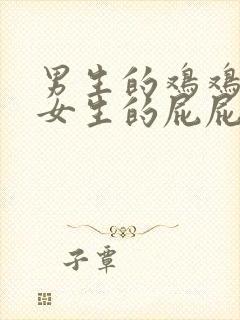 男生的鸡鸡
女生的屁屁
子覃